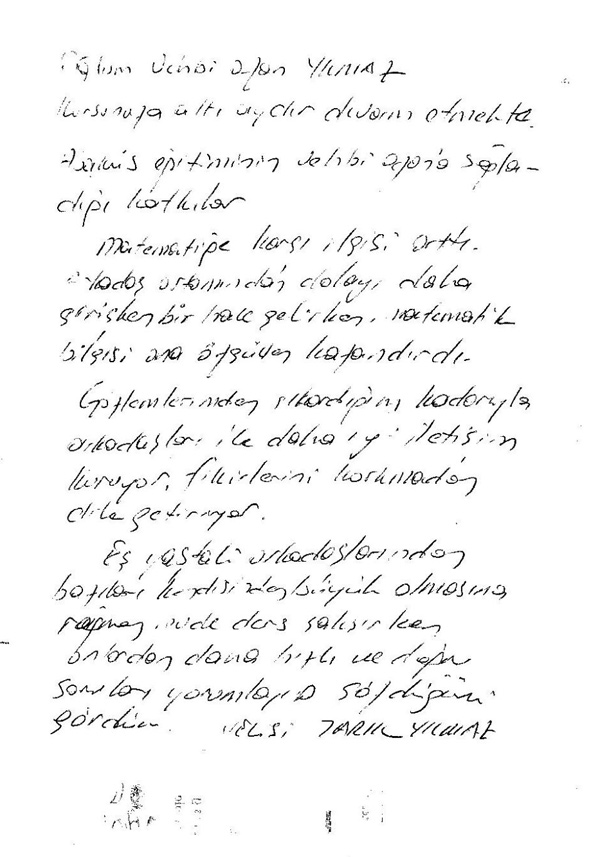 Oğlum Vehbi ozan YILMAZ
kursunuza altı aydır devam etmekte.
Abaküs eğitiminin vehbi ozan'a sağla-
dığı katkılar
Matematiğe karşı ilgisi arttı.
arkadaş ortamından dolayı daha
girişken bir hale gelirken, matematik
bilgisi ona özgüven kazandırdı.
Gözlemlerimden çıkardığım kadarıyla
arkadaşları ile daha iyi iletişim
kuruyor, fikirlerini korkmadan
dile getiriyor.
Eş yaştaki arkadaşlarından
bazıları kendisinden büyük olmasına
rağmen, evde ders çalışırken
onlardan daha hızlı ve doğru
soruları yorumlayıp çözdüğünü
gördüm. VELİSİ TARIK YILMAZ